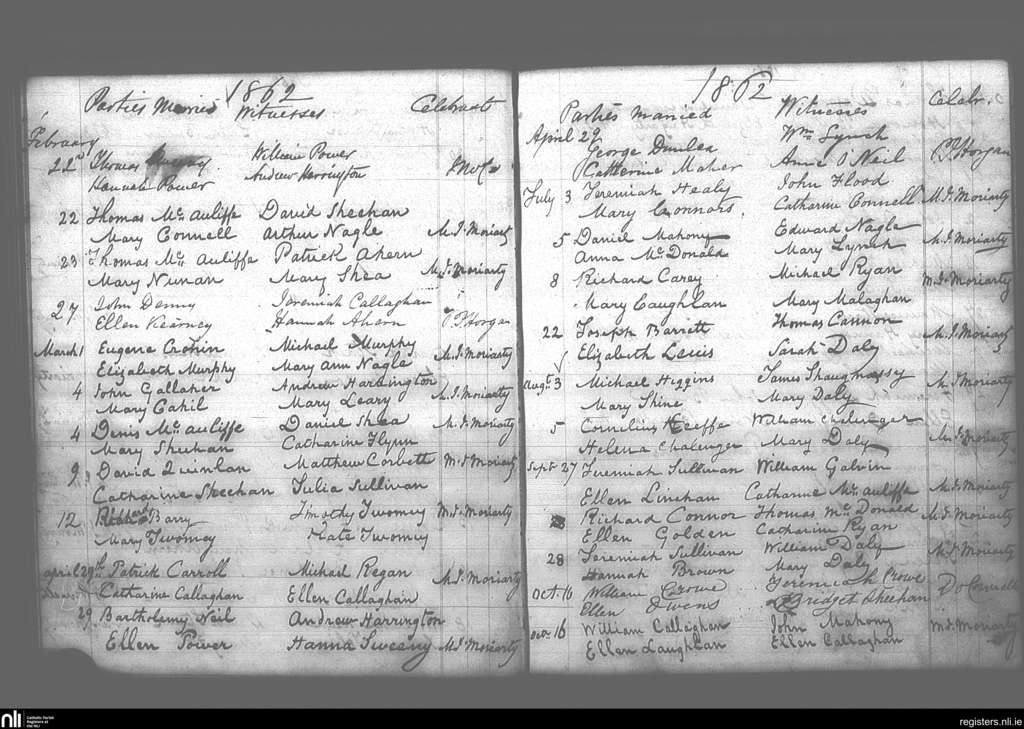 1862
Parties Married Witnesses Celebrants
February
22nd Thomas William Power
Hannah Power Andrew Harrington
22 Thomas McAuliffe David Sheehan
Mary Connell Arthur Nagle M.J. Moriarty
23 Thomas McAuliffe Patrick Ahern
Mary Nunan Mary Shea M.J. Moriarty
27 John Denny Jeremiah Callaghan
Ellen Kearney Hannah Ahern P Horgan
March 1 Eugene Cronin Michael Murphy
Elizabeth Murphy Mary Ann Nagle M.J. Moriarty
4 John Gallaher Andrew Harrington
Mary Cahil Mary Leary M.J. Moriarty
4 Denis McAuliffe Daniel Shea M.J. Moriarty
Mary Sheehan Catharine Flynn
9 David Quinlan Matthew Corbett M.J. Moriarty
Catharine Sheehan Julia Sullivan
12 Barry Timothy Twomey M.J. Moriarty
Mary Twomey Kate Twomey
April 29th Patrick Carroll Michael Regan
Catharine Callaghan Ellen Callaghan M.J. Moriarty
29 Bartholemy Neil Andrew Harrington
Ellen Power Hanna Sweeny M.J. Moriarty
1862
Parties Married Witnesses Celebr.
April 29 George Dunlea Wm Lynch
Catherine Maher Anne O'Neil P Horgan
July 3 Jeremiah Healy John Flood
Mary Connors. Catharine Connell M.J. Moriarty
5 Daniel Mahony Edward Nagle
Anna McDonald Mary Lynch M.J. Moriarty
8 Richard Carey Michael Ryan
Mary Caughlan Mary Malaghan M.J. Moriarty
22 Joseph Barrett Thomas Cannon
Elizabeth Lewis Sarah Daly M.J. Moriarty
Augt 3 Michael Higgins James Shaughnessy
Mary Shine Mary Daly M.J. Moriarty
5 Cornelius Keeffe William Chalenger
Helena Chalenger Mary Daly M.J. Moriarty
Sept 27 Jeremiah Sullivan William Galvin
Ellen Linehan Catharine McAuliffe M.J. Moriarty
Richard Connor Thomas McDonald
Ellen Golden Catharine Ryan M.J. Moriarty
28 Jeremiah Sullivan William Daly
Hannah Brown Mary Daly M.J. Moriarty
Oct. 16 William Crowe Jeremiah Crowe
Ellen Owens Bridget Sheehan D O'Connell
Octr 16 William Callaghan John Mahony
Ellen Laughlan Ellen Callaghan M.J. Moriarty
nli Catholic Parish
Registers at
the NLI
registers.nli.ie